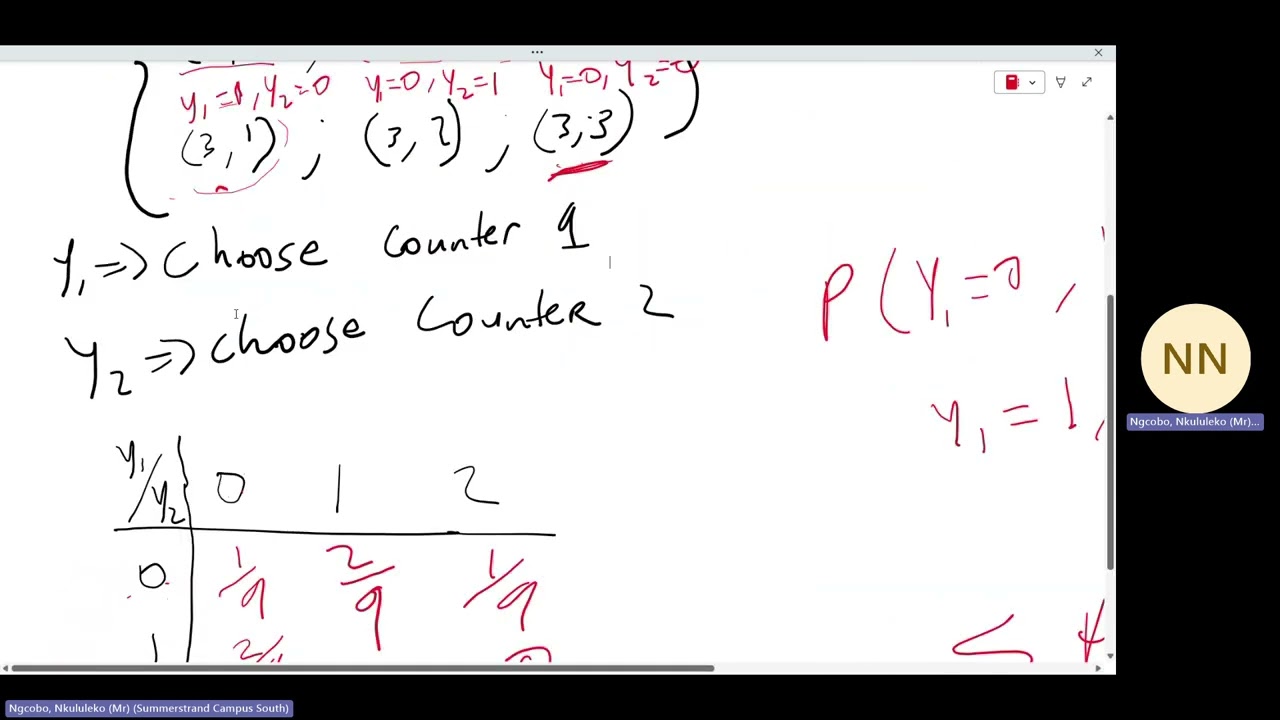 y₁=1, Y₂=0 y₁=0, Y₂=1 Y₁=0, Y₂=0
(3,1) ; (3,2) ; (3,3)
Y₁ => Choose Counter 1
Y₂ => Choose Counter 2
P(Y₁=0,
y₁=1,
y₁/y₂ 0 1 2
0 1/9 2/9 1/9
1 2/
NN
Ngcobo, Nkululeko (Mr)...
Ngcobo, Nkululeko (Mr) (Summerstrand Campus South)